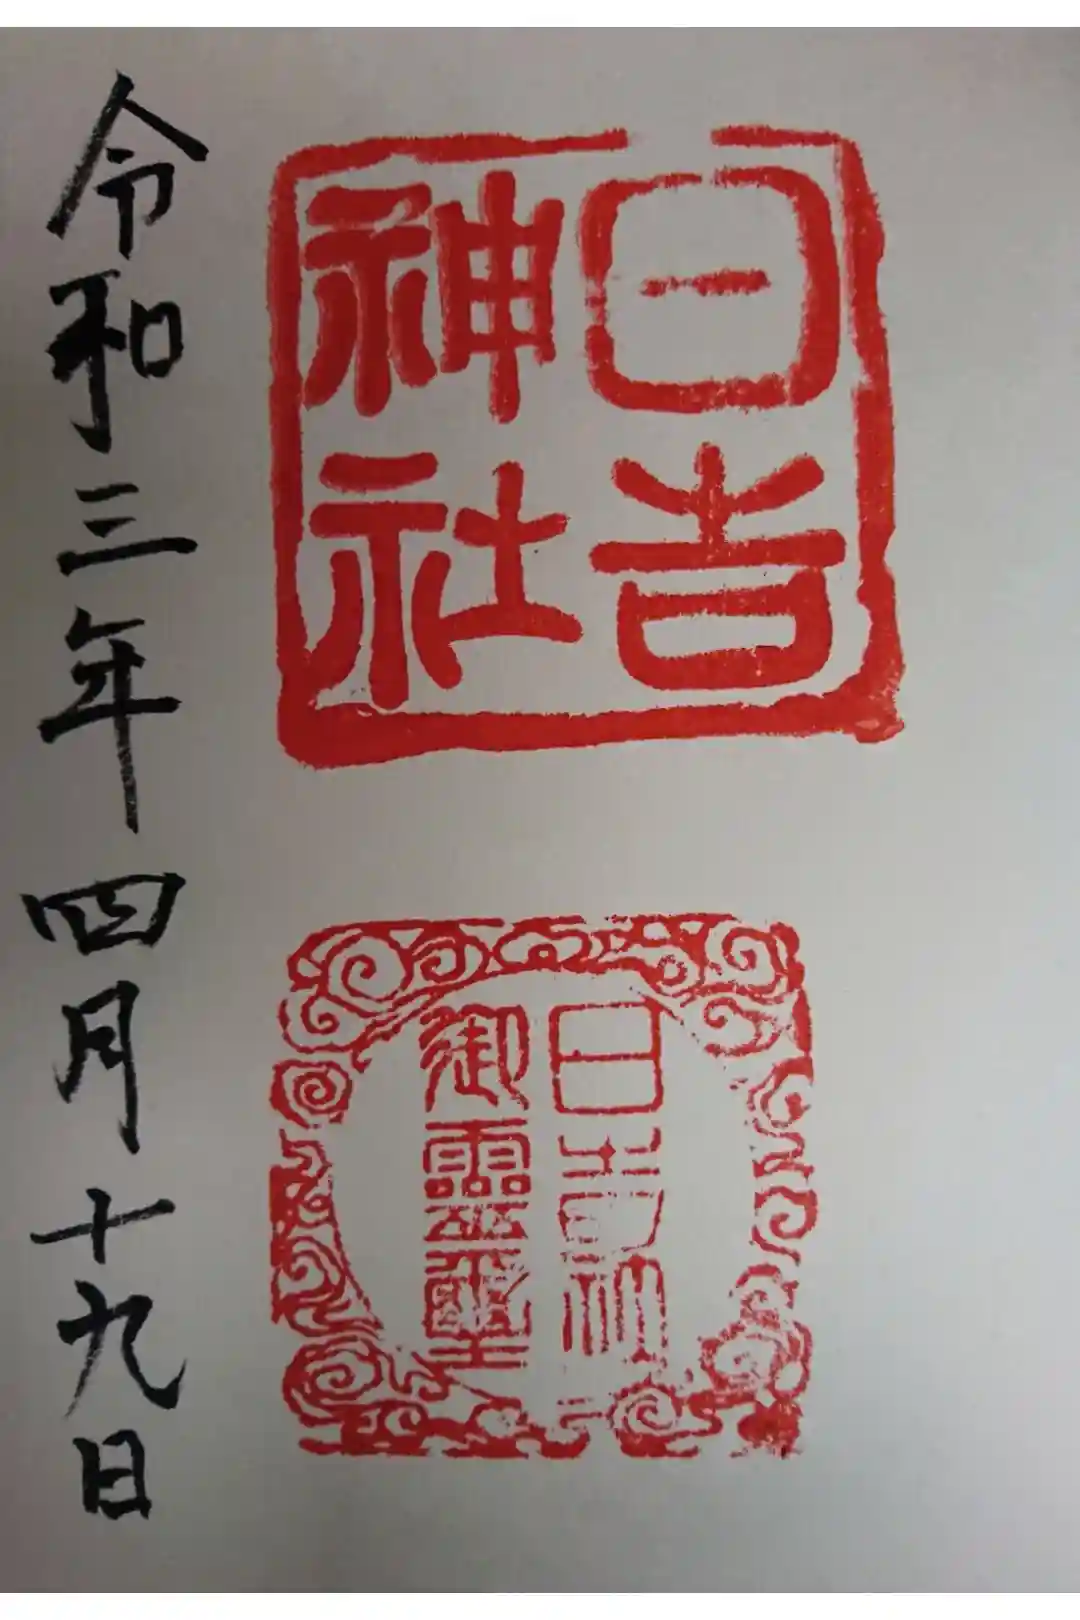 日吉
神社
日吉神
御靈璽
令和三年四月十九日